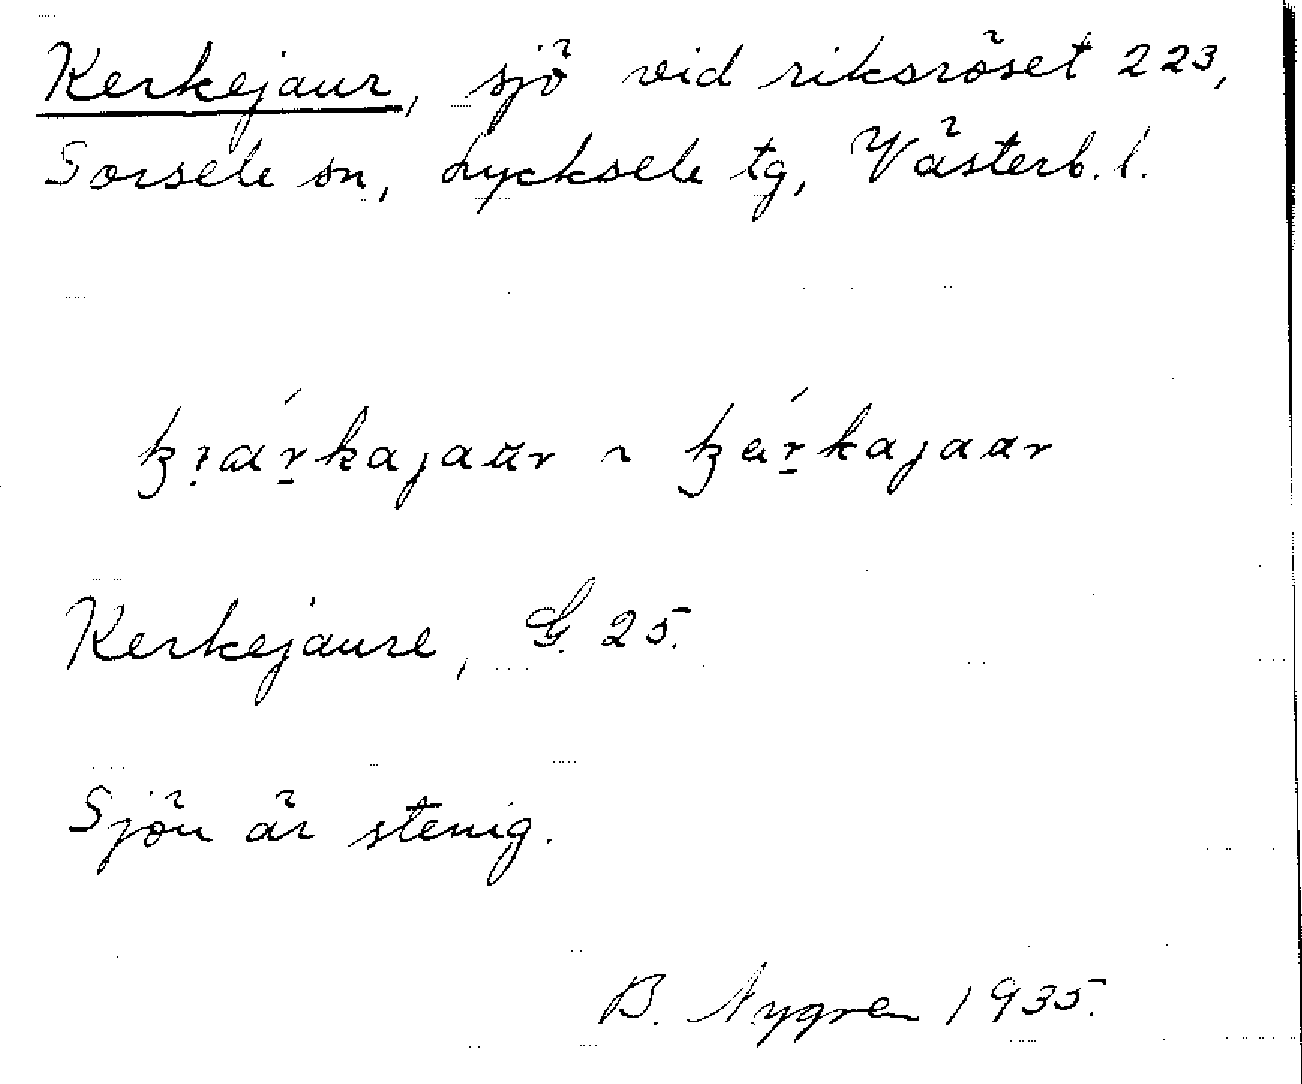 Kerkejaur, sjö vid riksröset 223,
Sorsele sn, Lycksele tg, Västerb. l.
Kerkejaure, G. 25.
Sjön är stenig.
B. Nygren 1935.